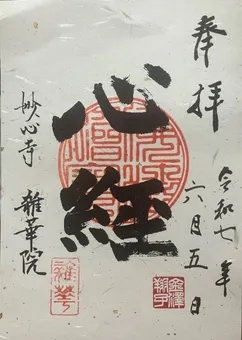 奉拝
令和七年
六月五日
心経
妙心寺 雜華院
雜華